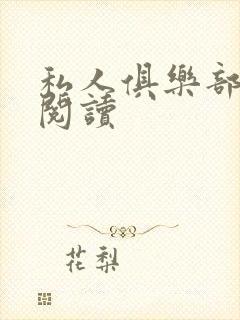 私人俱樂部
閱讀
花梨